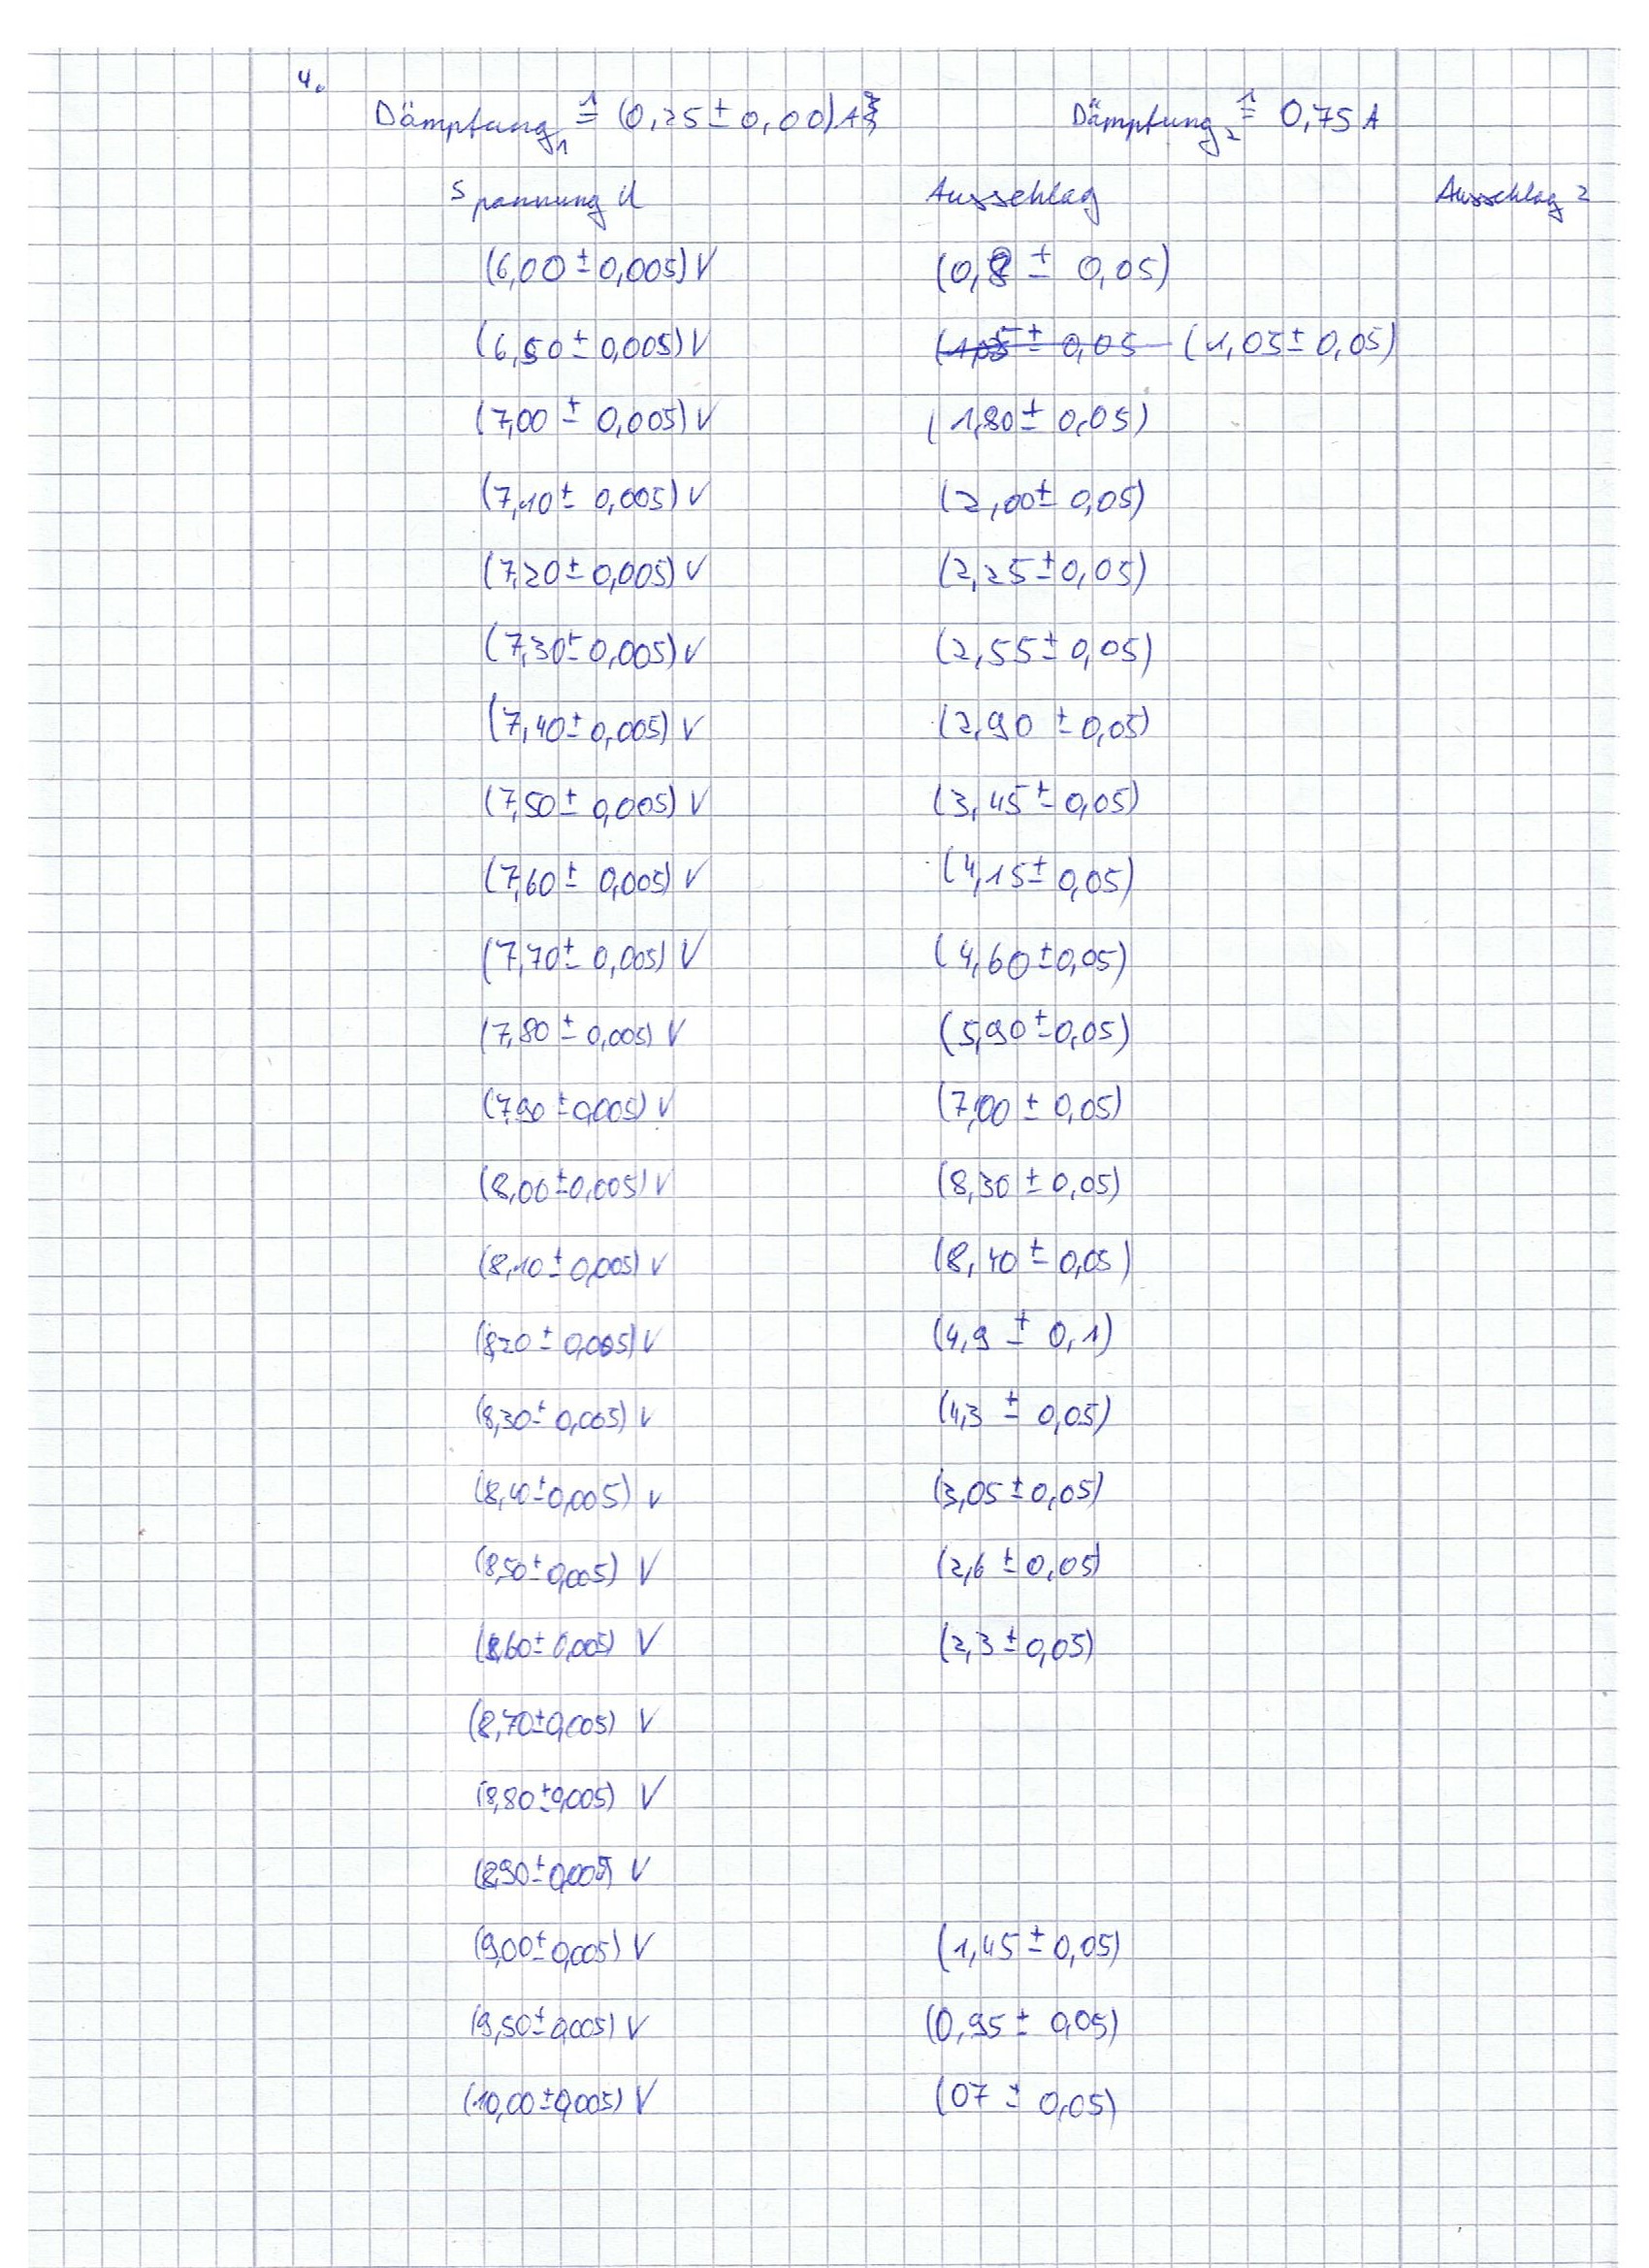 4.
Dämpfung₁ ≙ (0,25 ± 0,00) A Dämpfung₂ ≙ 0,75 A
Spannung U Ausschlag Ausschlag 2
(6,00 ± 0,005) V (0,8 ± 0,05)
(6,50 ± 0,005) V (1,05 ± 0,05 (1,05 ± 0,05)
(7,00 ± 0,005) V (1,80 ± 0,05)
(7,10 ± 0,005) V (2,00 ± 0,05)
(7,20 ± 0,005) V (2,25 ± 0,05)
(7,30 ± 0,005) V (2,55 ± 0,05)
(7,40 ± 0,005) V (2,90 ± 0,05)
(7,50 ± 0,005) V (3,45 ± 0,05)
(7,60 ± 0,005) V (4,15 ± 0,05)
(7,70 ± 0,005) V (4,60 ± 0,05)
(7,80 ± 0,005) V (5,90 ± 0,05)
(7,90 ± 0,005) V (7,00 ± 0,05)
(8,00 ± 0,005) V (8,30 ± 0,05)
(8,10 ± 0,005) V (8,40 ± 0,05)
(8,20 ± 0,005) V (4,9 ± 0,1)
(8,30 ± 0,005) V (4,3 ± 0,05)
(8,40 ± 0,005) V (3,05 ± 0,05)
(8,50 ± 0,005) V (2,6 ± 0,05)
(8,60 ± 0,005) V (2,3 ± 0,05)
(8,70 ± 0,005) V
(8,80 ± 0,005) V
(8,90 ± 0,005) V
(9,00 ± 0,005) V (1,45 ± 0,05)
(9,50 ± 0,005) V (0,95 ± 0,05)
(10,00 ± 0,005) V (07 ± 0,05)